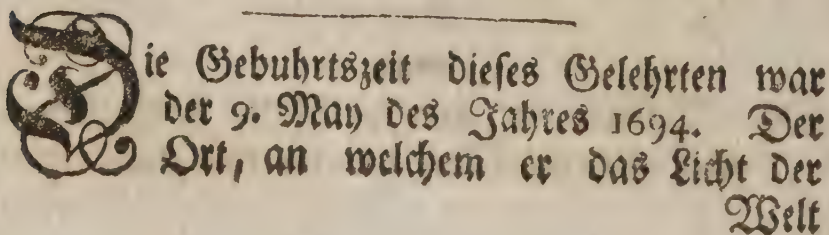 Die Gebuhrtszeit dieses Gelehrten war
der 9. May des Jahres 1694. Der
Ort, an welchem er das Licht der
Welt